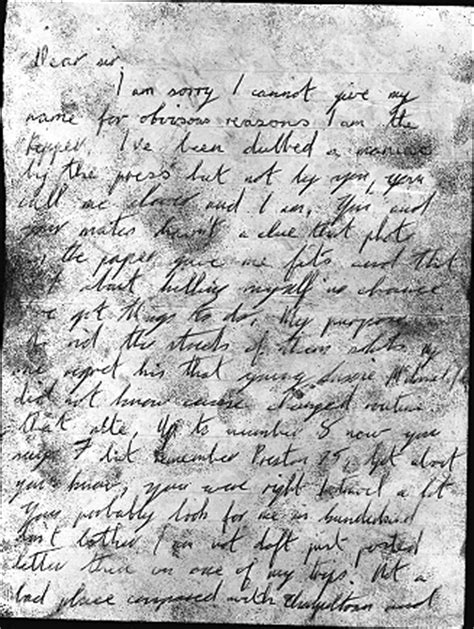 Dear sir,
I am sorry I cannot give my
name for obvisous reasons I am the
ripper. I've been dubbed a maniac
by the press but not by you, you
call me clever and I am. You and
your mates haven't a clue that photo
in the paper gave me fits and that
bit about killing myself no chance
I've got things to do, My purpose
to rid the streets of them sluts. My
one regret his that young lassie
did not know cause changed routine
that nite, Up to number 8 now you
say 7 but remember Preston 75, Get about
you know, you were right travel a bit
You probably look for me in Sunderland
don't bother I am not daft just posted
letter there on one of my trips. Not a
bad place compared with Chapeltown and